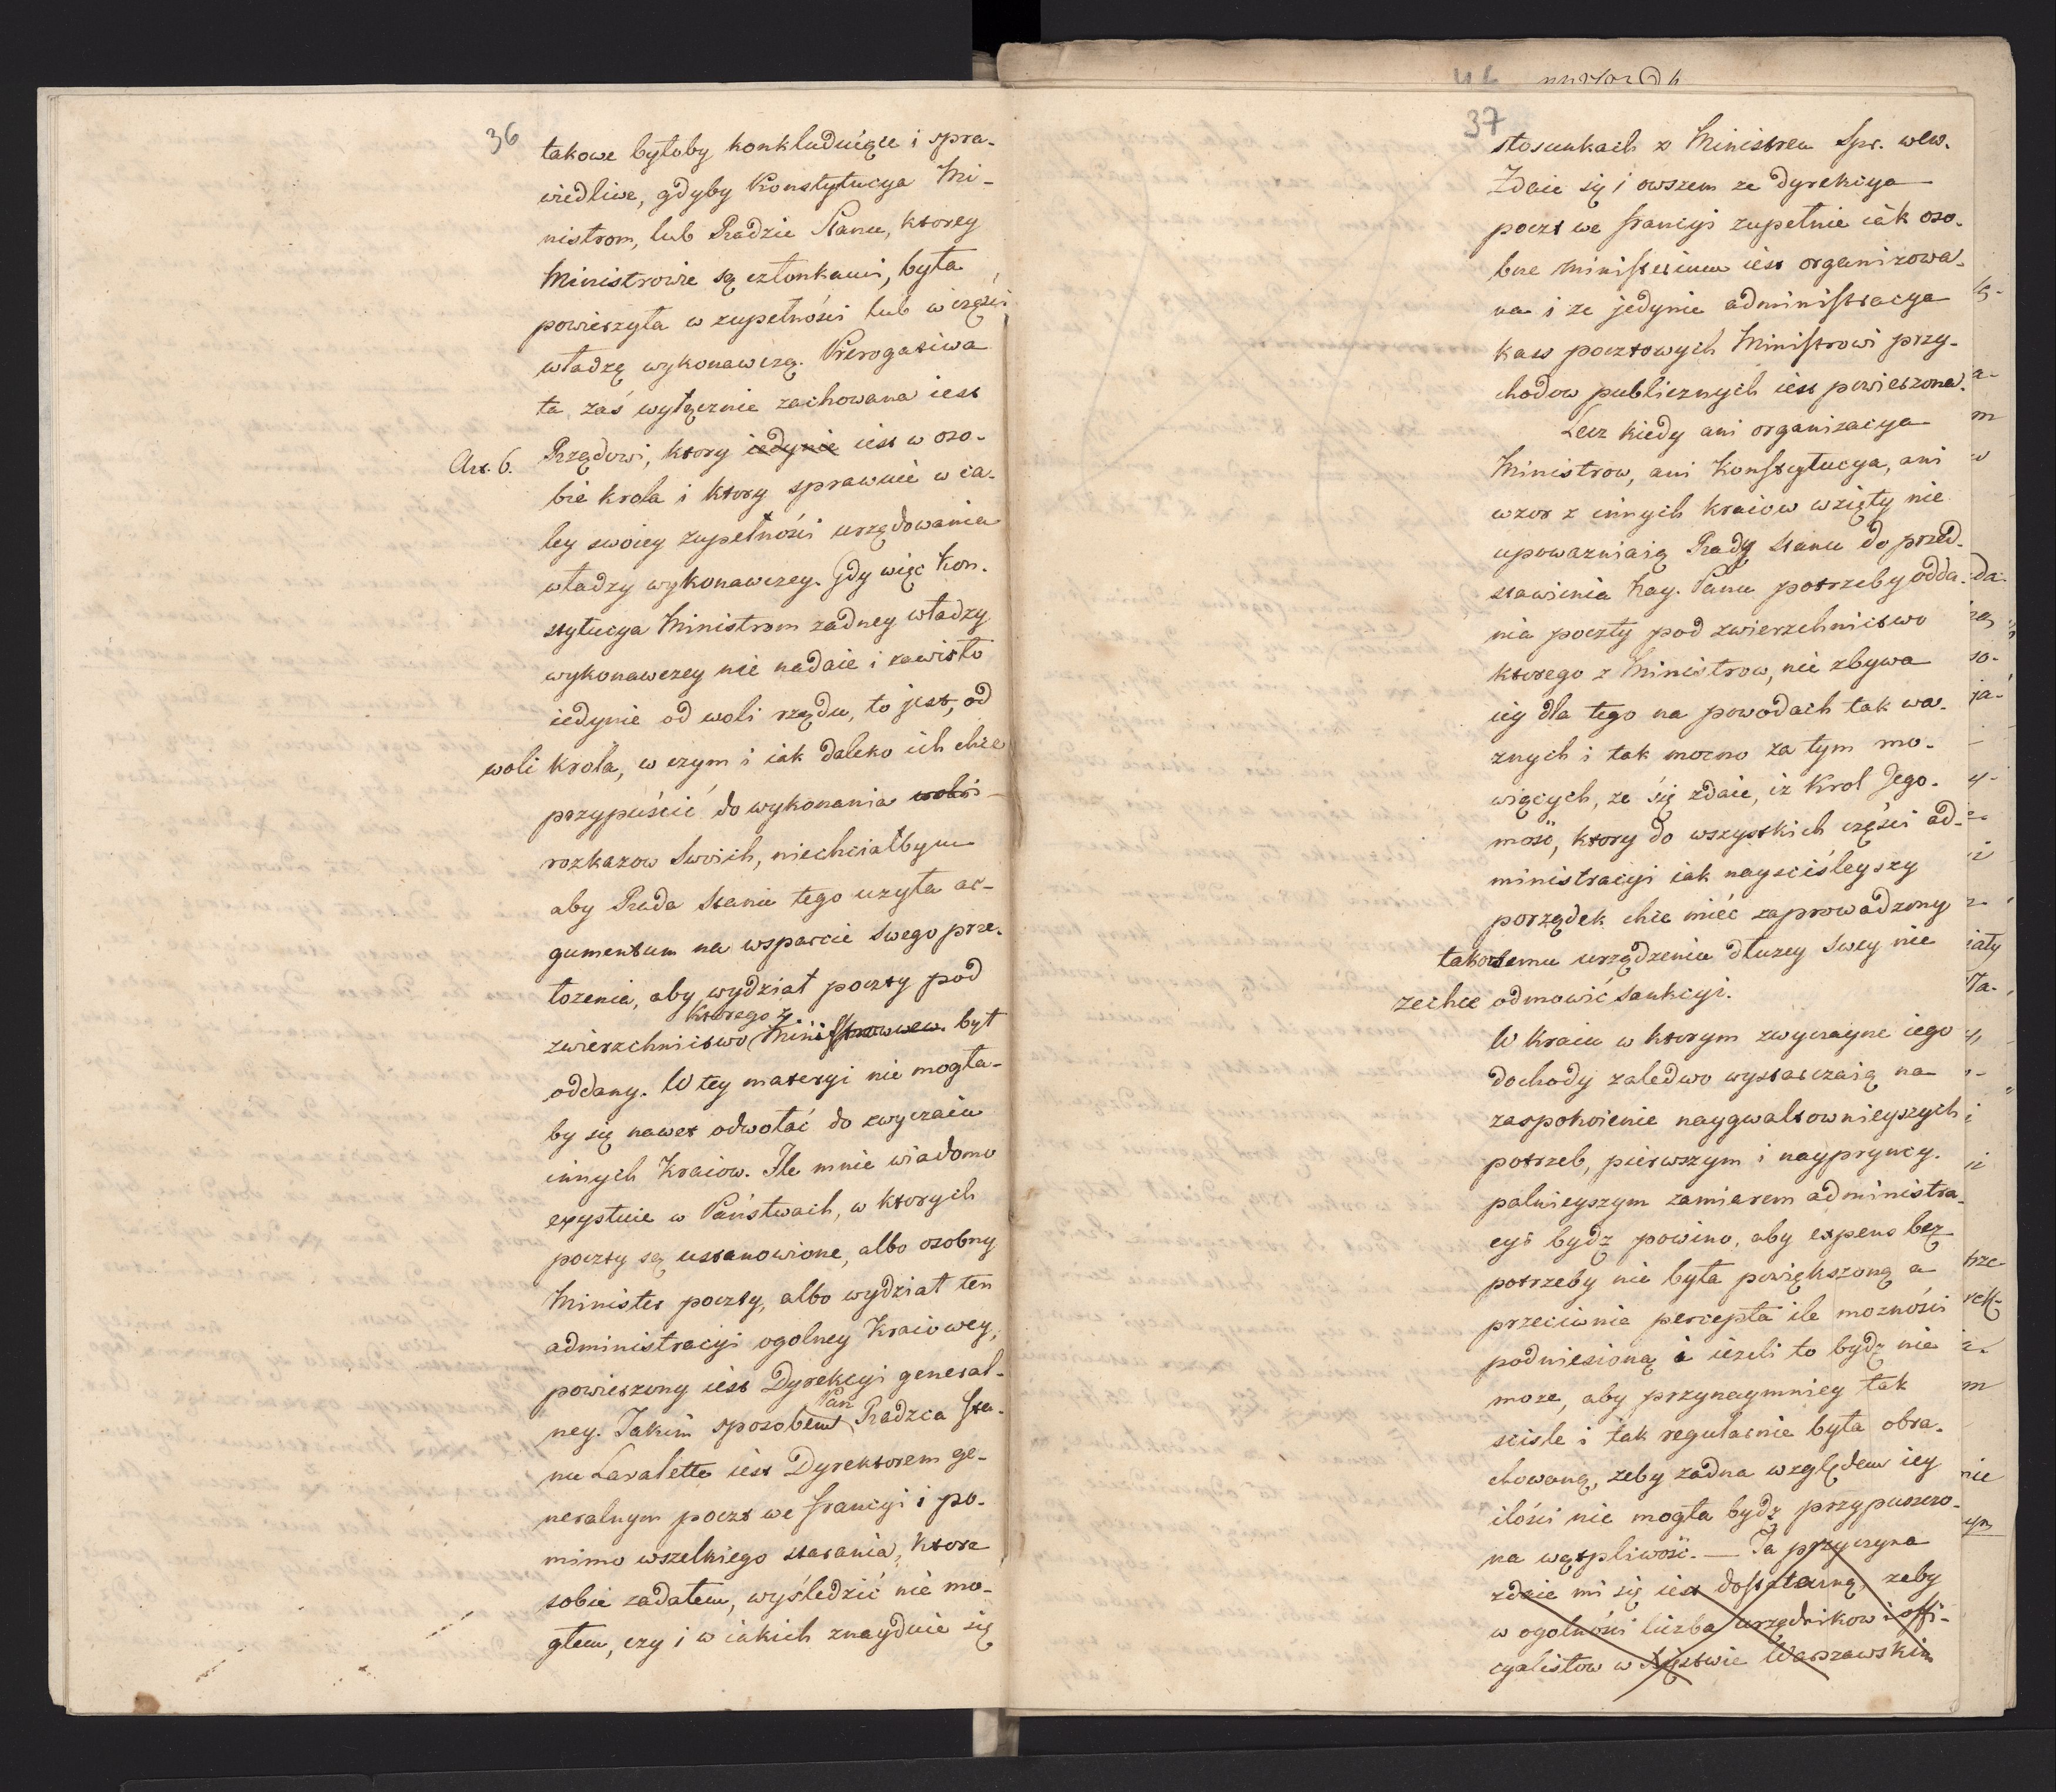 36
takowe byłoby konkluduiące i spra-
wiedliwe, gdyby Konstytucya Mi-
nistrom, lub Radzie Stanu, ktorey
Ministrowie są członkami, była
powierzyła w zupełności lub w części
władzę wykonawczą. Prerogatiwa
ta zaś wyłącznie zachowana iest
Art. 6. Rządowi, ktory iedynie iest w oso-
bie krola i ktory sprawuie w ca-
ley swoiey zupełności urzędowania
władzy wykonawczey. Gdy więc Kon-
stytucya Ministrom zadney władzy
wykonawczey nie nadaie i zawisło
iedynie od woli rządu, to jest, od
woli krola, w czym i iak daleko ich chce
przypuścić do wykonania woli
rozkazow Swoich, niechciałbym
aby Rada Stanu tego uzyła ar-
gumentum na wsparcie Swego prze-
łozenia, aby wydział poczty pod
ktorego z
zwierzchnictwo Ministrow wew. był
oddany. W tey materyi nie mogła-
by się nawet odwołać do zwyczaiu
innych Kraiow. Ile mnie wiadomo
exystuie w Państwach, w ktorych
poczty są ustanowione, albo osobny
Minister poczty, albo wydział ten
administracyi ogolney Kraiowey,
powierzony iest Dyrekcyi general-
Pan
ney. Takim sposobem Radzca Sta-
nu Lavalette iest Dyrektorem ge-
neralnym poczt we francyi i po-
mimo wszelkiego starania, ktore
sobie zadałem, wyśledzić nie mo-
głem, czy i w iakich znayduie się
37
stosunkach z Ministrem Spr. wew.
Zdaie się i owszem ze dyrekcya
poczt we francyi zupełnie iak oso-
bne ministerium iest organizowa-
na i ze jedynie administracya
kass pocztowych Ministrowi przy-
chodow publicznych iest powierzona.
Lecz kiedy ani organizacya
Ministrow, ani Konstytucya, ani
wzor z innych kraiow wzięty nie
upowazniaią Rady Stanu do przed-
stawienia Nay. Panu potrzeby odda-
nia poczty pod zwierzchnictwo
ktorego z Ministrow, nie zbywa
iey dla tego na powodach tak wa-
znych i tak mocno za tym mo-
wiących, ze się zdaie, iz Krol Jego-
mość, ktory do wszystkich części ad-
ministracyi iak nayściśleyszy
porządek chce mieć zaprowadzony
takowemu urządzeniu dłuzey Swey nie
zechce odmowić sankcyi.
W kraiu w ktorym zwyczayne iego
dochody zaledwo wystarczaią na
zaspokoienie naygwałtownieyszych
potrzeb, pierwszym i naypryncy-
palnieyszym zamiarem administra-
cyi bydz powino, aby expens bez
potrzeby nie była powiększoną a
przeciwnie percepta ile moznośći
podniesioną a iezeli to bydz nie
moze, aby przynaymniey tak
scisle i tak regularnie była obra-
chowaną, zeby zadna względem iey
ilości nie mogła bydz przypuszczo-
na wątpliwość. — Ta przyczyna
zdaie mi się iest dostateczną, zeby
w ogolności liczba urzędnikow i offi-
cyalistow w Xięstwie Warszawskim